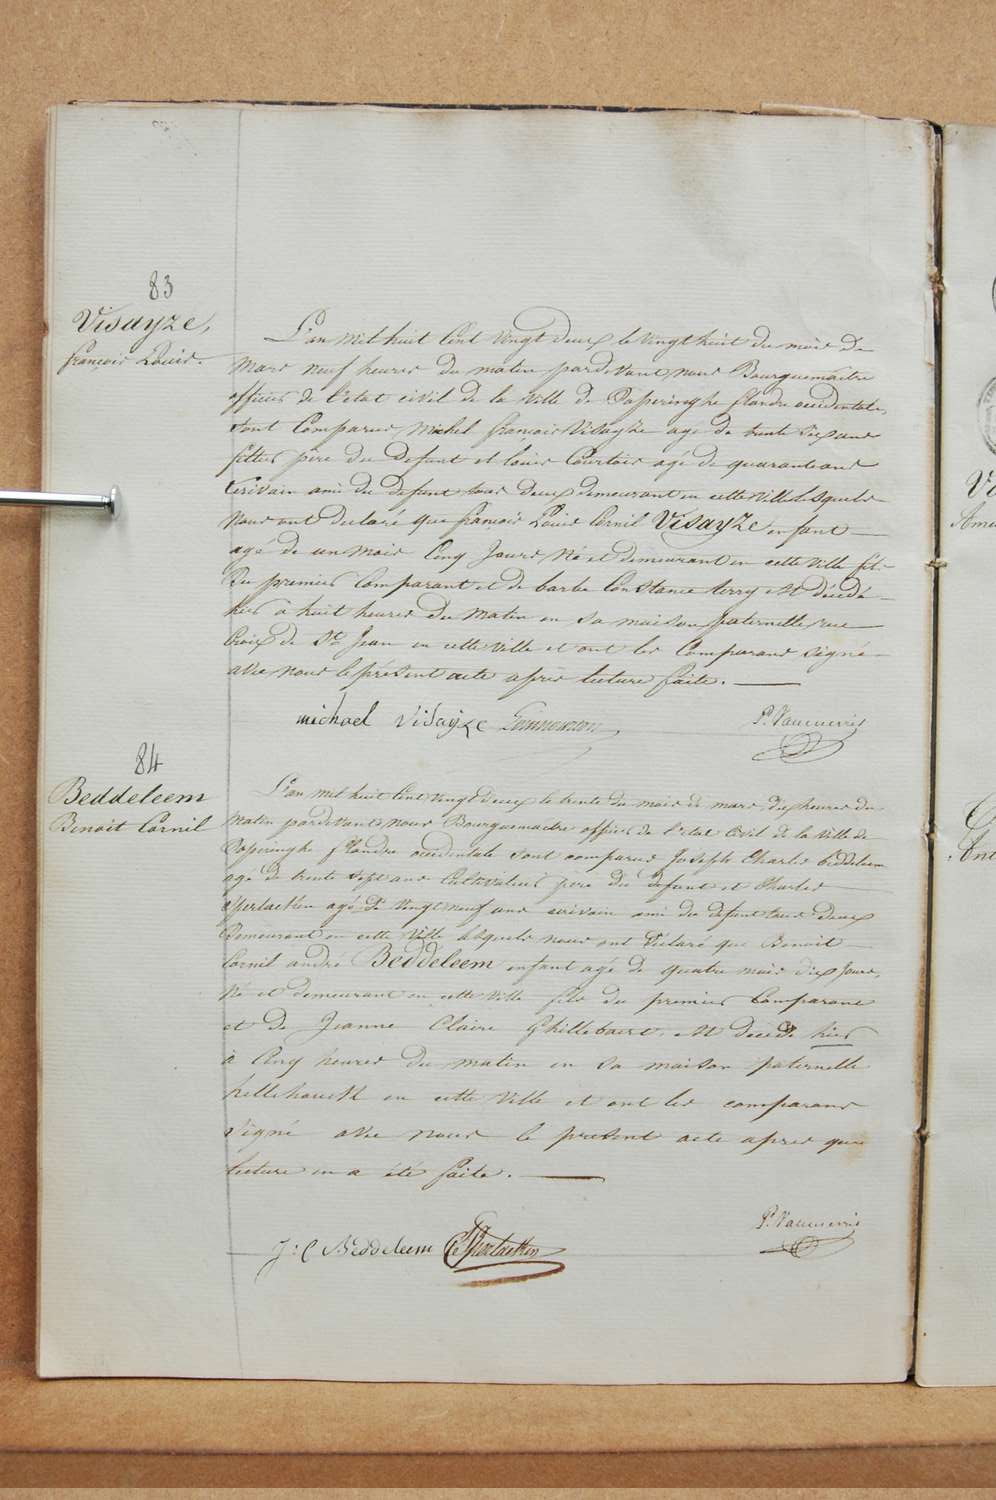 83
Visayze,
françois Louis.
L'an mil huit Cent vingt deux le vingt huit du mois de
Mars neuf heures du matin pardevant nous Bourguemaitre
officier de l'etat civil de la ville de Poperinghe flandre occidentale,
Sont Comparus Michel françois Visayze agé de trente six ans
père du defunt et Louis Courtois agé de quarante ans
Ecrivain ami du defunt tous deux demeurant en cette ville lesquels
Nous ont declaré que françois Louis Cornil Visayze enfant
agé de un mois Cinq Jours Né et demeurant en cette ville fils
Du premier Comparant et de barbe Constance terry est décédé
hier a huit heures du Matin en sa maison paternelle rue
Croix de St. Jean en cette ville et ont les Comparans signé
avec nous le présent acte après lecture faite.
michael Visayze
P. Vanmerris
84
Beddeleem
Benoit Cornil
L'an mil huit Cent vingt deux le trente du mois de mars dix heures du
Matin pardevant nous Bourguemaitre officier de l'etat Civil de la ville de
Poperinghe flandre occidentale sont comparus Joseph Charles beddeleem
agé de trente sept ans Cultivateur père du defunt et Charles
agé de vingt neuf ans ecrivain ami du defunt tous deux
Demeurant en cette ville lesquels nous ont declaré que Benoit
Cornil andré Beddeleem enfant agé de quatre mois dix Jours,
Né et demeurant en cette ville fils du premier Comparant
et de Jeanne Claire Ghillebaert est decedé hier
à Cinq heures du matin en sa maison paternelle
en cette ville et ont les comparans
signé avec nous le present acte apres que
lecture en a été faite.
J: C Beddeleem
P. Vanmerris